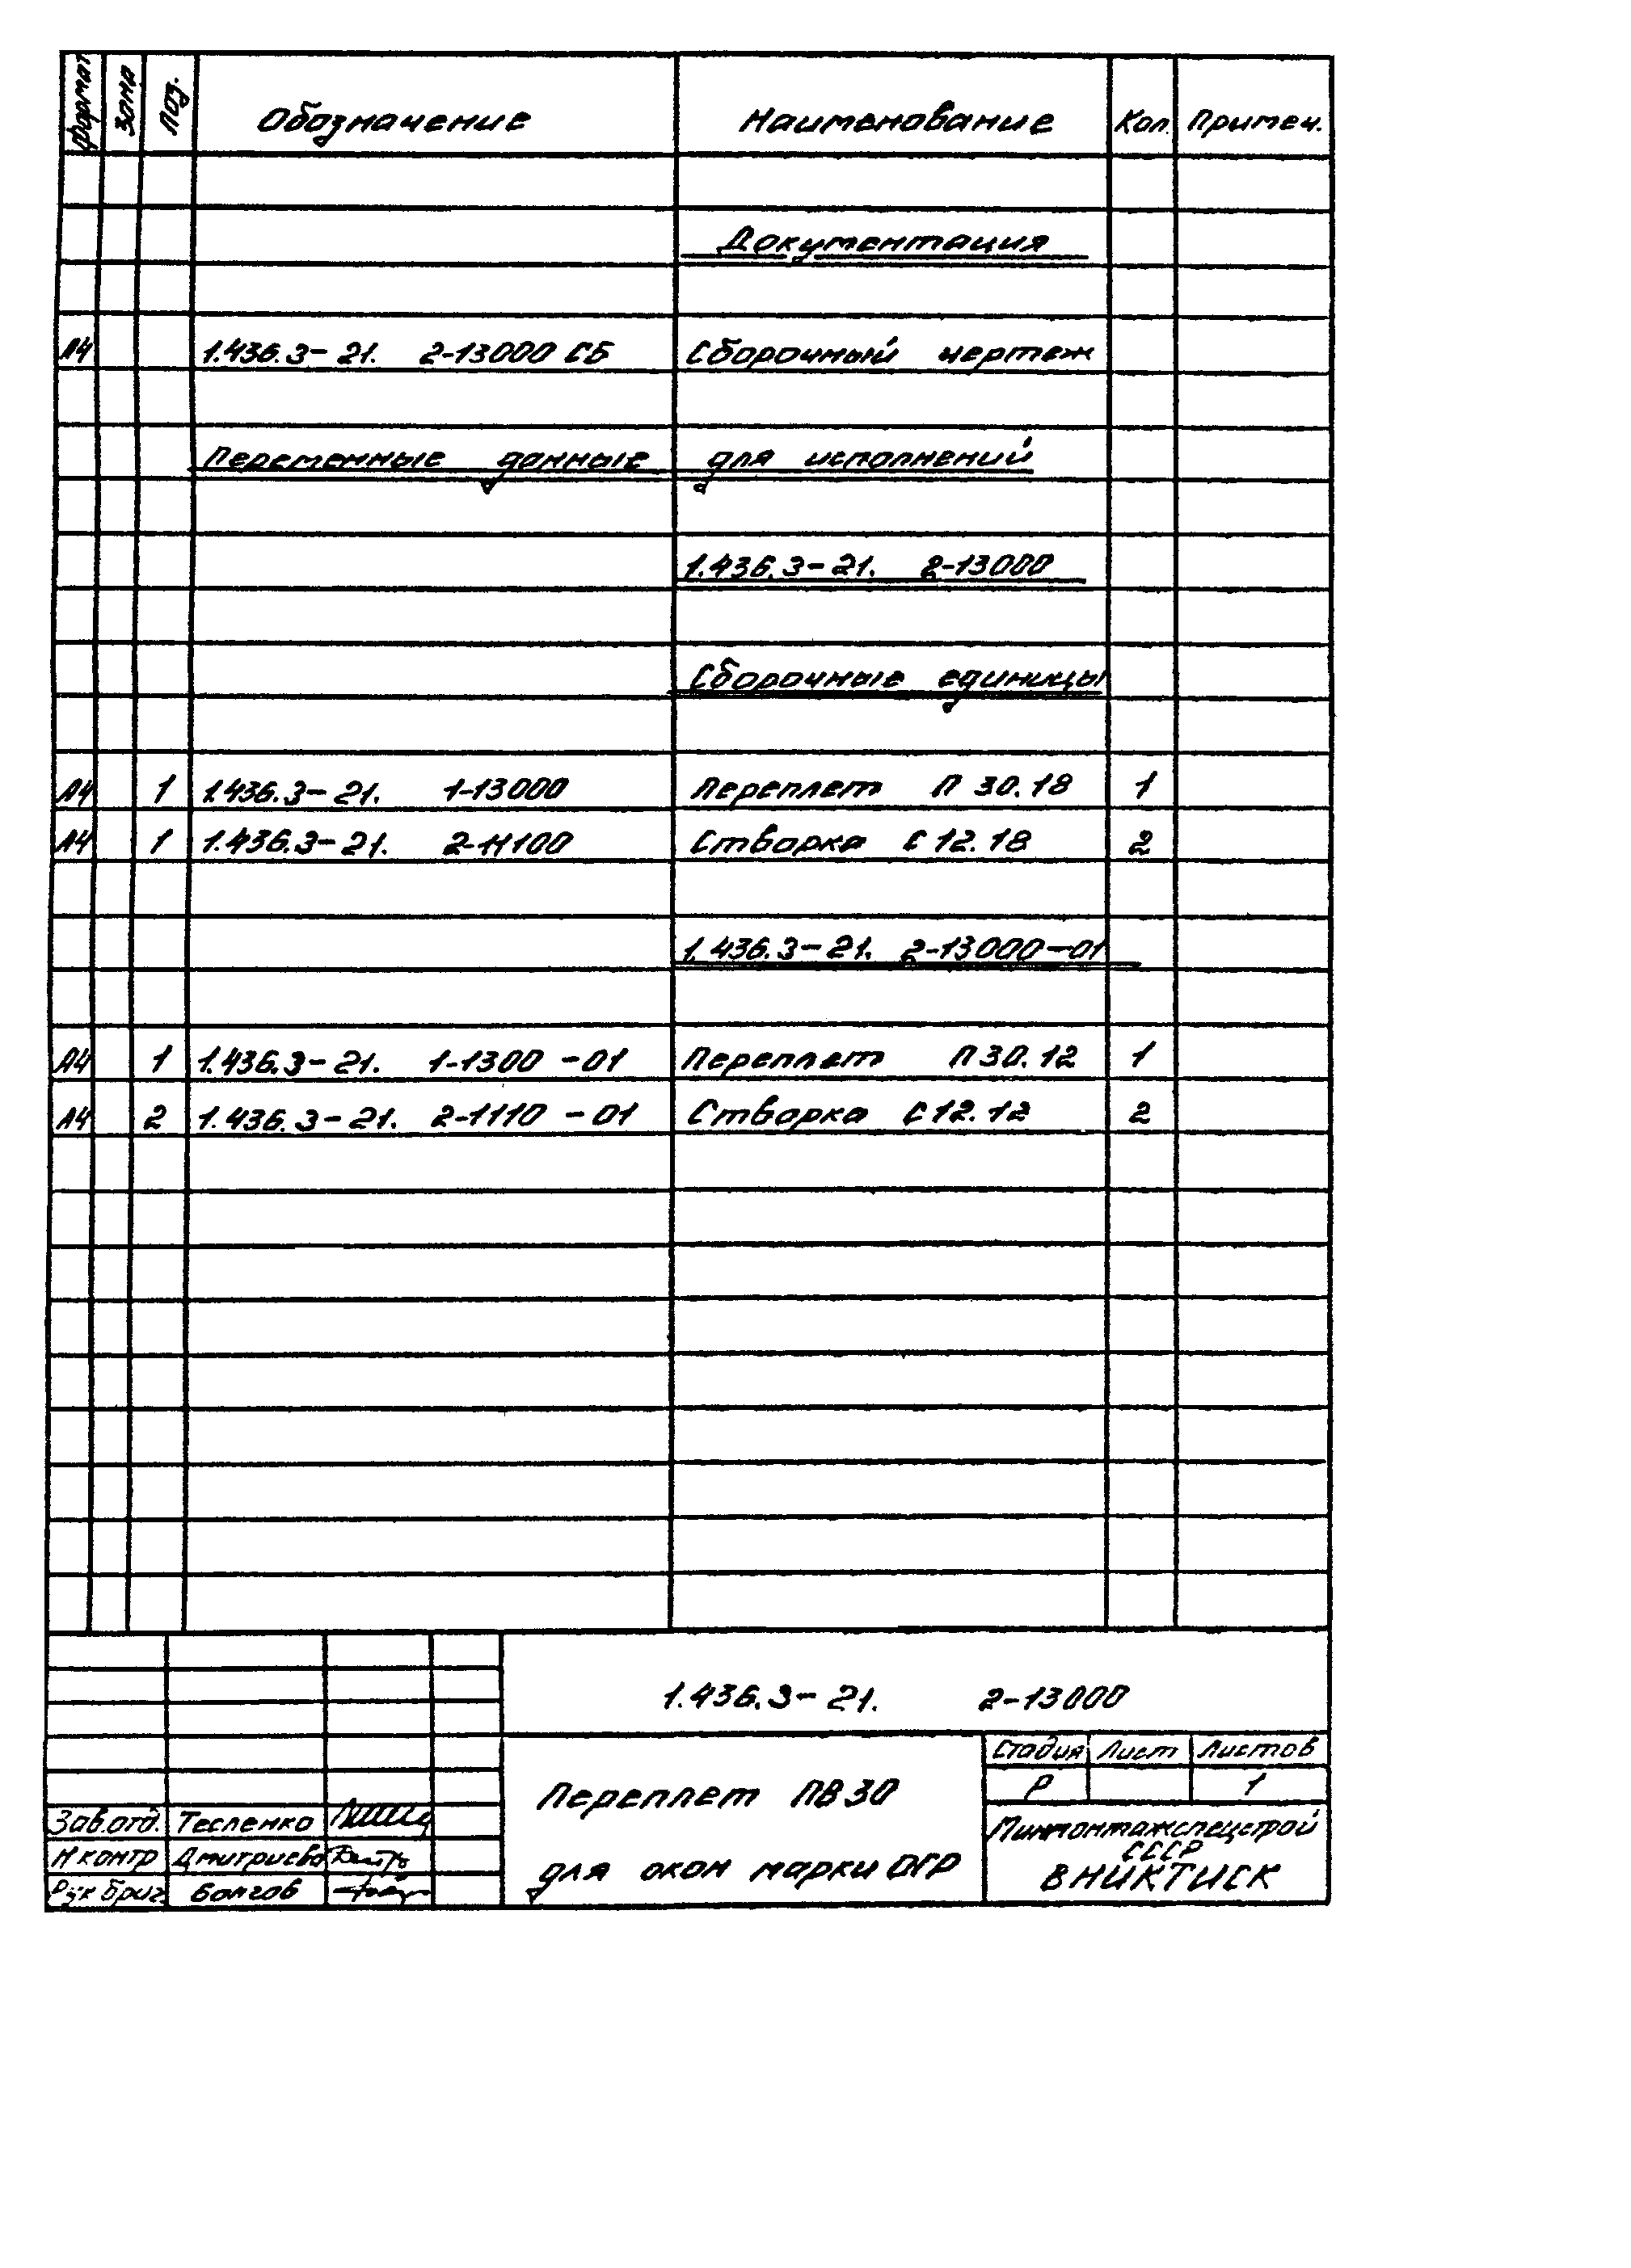 Формат Зона Поз. Обозначение Наименование Кол. Примеч.
Документация
А4 1.436.3-21. 2-13000 СБ Сборочный чертеж
Переменные данные для исполнений
1.436.3-21. 2-13000
Сборочные единицы
А4 1 1.436.3-21. 1-13000 Переплет П 30.18 1
А4 1 1.436.3-21. 2-11100 Створка С 12.18 2
1.436.3-21. 2-13000-01
А4 1 1.436.3-21. 1-1300 -01 Переплет П 30.12 1
А4 2 1.436.3-21. 2-1110 -01 Створка С 12.12 2
1.436.3-21. 2-13000
Стадия Лист Листов
Р 1
Переплет ПВ 30
для окон марки ОГР
Зав.отд. Тесленко
Н контр Дмитриева
Рук бриг Болгов
Минмонтажспецстрой
СССР
ВНИКТИСК